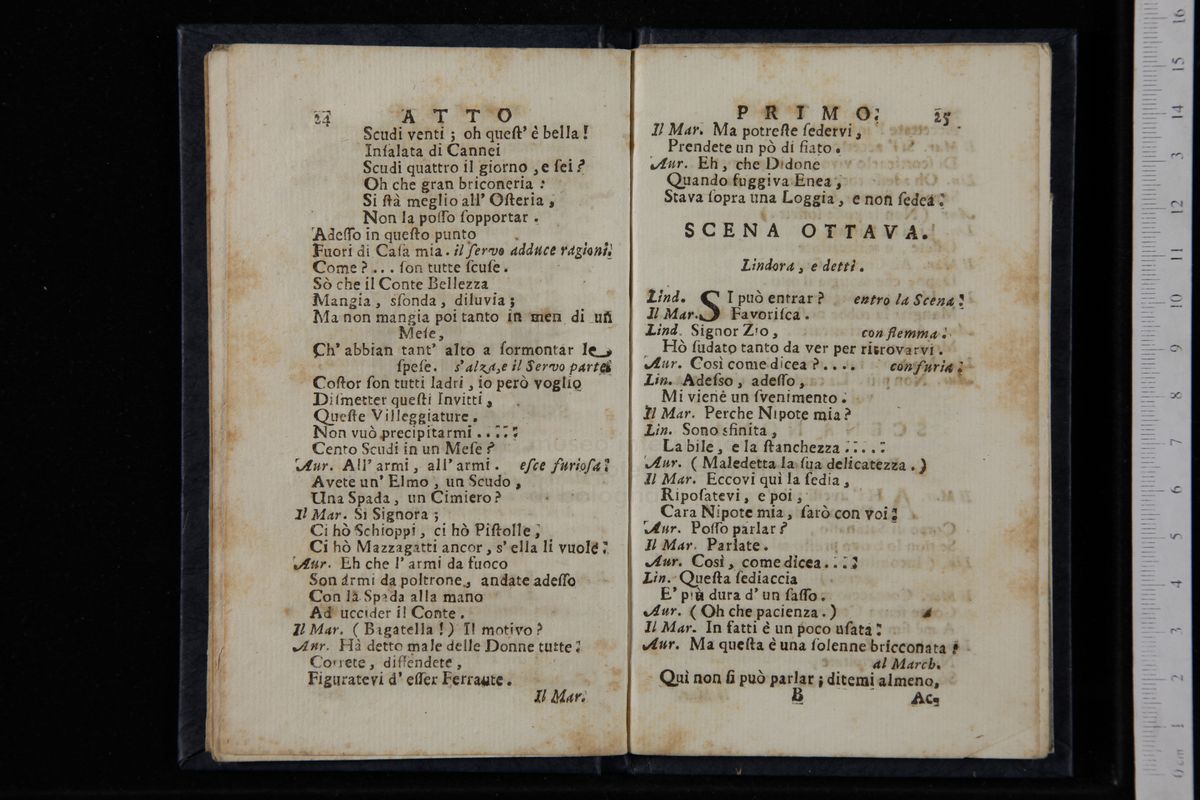 24 ATTO
Scudi venti ; oh queſt' è bella !
Inſalata di Cannei
Scudi quattro il giorno , e ſei ?
Oh che gran briconeria :
Si ſtà meglio all' Oſteria ,
Non la poſſo ſopportar .
Adeſſo in queſto punto
Fuori di Caſa mia . il ſervo adduce ragioni.
Come ? . . . ſon tutte ſcuſe .
Sò che il Conte Bellezza
Mangia , sfonda , diluvia ;
Ma non mangia poi tanto in men di un
Meſe ,
Ch' abbian tant' alto a ſormontar le
ſpeſe . s'alza,e il Servo parte.
Coſtor ſon tutti ladri , io però voglio
Diſmetter queſti Invitti ,
Queſte Villeggiature .
Non vuò precipitarmi . . . . .
Cento Scudi in un Meſe ?
Aur. All' armi , all' armi . eſce furioſa.
Avete un' Elmo , un Scudo ,
Una Spada , un Cimiero ?
Il Mar. Si Signora ;
Ci hò Schioppi , ci hò Piſtolle ,
Ci hò Mazzagatti ancor , s' ella li vuole .
Aur. Eh che l' armi da fuoco
Son armi da poltrone , andate adeſſo
Con la Spada alla mano
Ad uccider il Conte .
Il Mar. ( Bagatella ! ) Il motivo ?
Aur. Hà detto male delle Donne tutte .
Correte , diffendete ,
Figuratevi d' eſſer Ferraute .
Il Mar.
PRIMO. 25
Il Mar. Ma potreſte ſedervi ,
Prendete un pò di fiato .
Aur. Eh , che Didone
Quando fuggiva Enea ,
Stava ſopra una Loggia , e non ſedea .
SCENA OTTAVA.
Lindora , e detti .
Lind. SI può entrar ? entro la Scena .
Il Mar. Favoriſca .
Lind. Signor Zio , con flemma .
Hò ſudato tanto da ver per ritrovarvi .
Aur. Così come dicea ? . . . . con furia .
Lin. Adeſso , adeſſo ,
Mi viene un ſvenimento .
Il Mar. Perche Nipote mia ?
Lin. Sono sfinita ,
La bile , e la ſtanchezza . . . . .
Aur. ( Maledetta la ſua delicatezza . )
Il Mar. Eccovi quì la ſedia ,
Ripoſatevi , e poi ,
Cara Nipote mia , ſarò con voi .
Aur. Poſſo parlar ?
Il Mar. Parlate .
Aur. Così , come dicea . . . .
Lin. Queſta ſediaccia
E' più dura d' un ſaſſo .
Aur. ( Oh che pacienza . )
Il Mar. In fatti è un poco uſata .
Aur. Ma queſta è una ſolenne bricconata
al March.
Quì non ſi può parlar ; ditemi almeno,
B Ac-